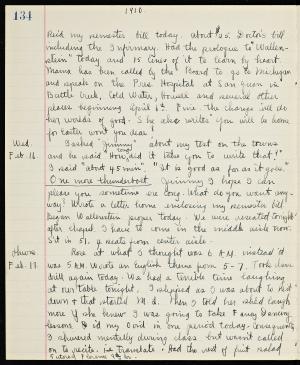 134
1910.
Paid my semester bill today. about $35. Doctor's bill
including the Infirmary. Had the prologue to Wallen-
stein today and 15 lines of it to learn by heart.
Mama has been called by the Board to go to Michigan
and speak on the Pure Hospital at San Juan in
Battle Creek, Cold Water, Howell and several other
places beginning April 1st. Fine. The change will do
her worlds of good. She also writes "you will be home
for Easter won't you dear!
Wed.
Feb. 16.
I asked "Jimmy" about my test on the towns
and he said "How long did it take you to write that!"
I said "about 45 min." "It is good as far as it goes."
One more thunderbolt. Jimmy I hope I can
please you sometime ere long. What do you want any-
way? Wrote a letter home enclosing my semester bill
began Wallenstein proper today. We were seated tonight
after chapel. I have to come in the middle aisle now.
Sit in 51, 9 seats from center aisle.
Thurs.
Feb. 17.
Rose at what I thought was 6 A.M. instead it
was 5 A.M. Wrote an English theme from 5-7. Took
drill again today. We had a terrible time laughing
at our table tonight. I slipped as I was about to sit
down & that started M. D. Then I told her she'd laugh
more if she knew I was going to take Fancy Dancing
lessons. Did my Ovid in one period today. Consequently
I shivered mentally during class but wasn't called
on to recite i.e. translate. Had the rest of fruit salad